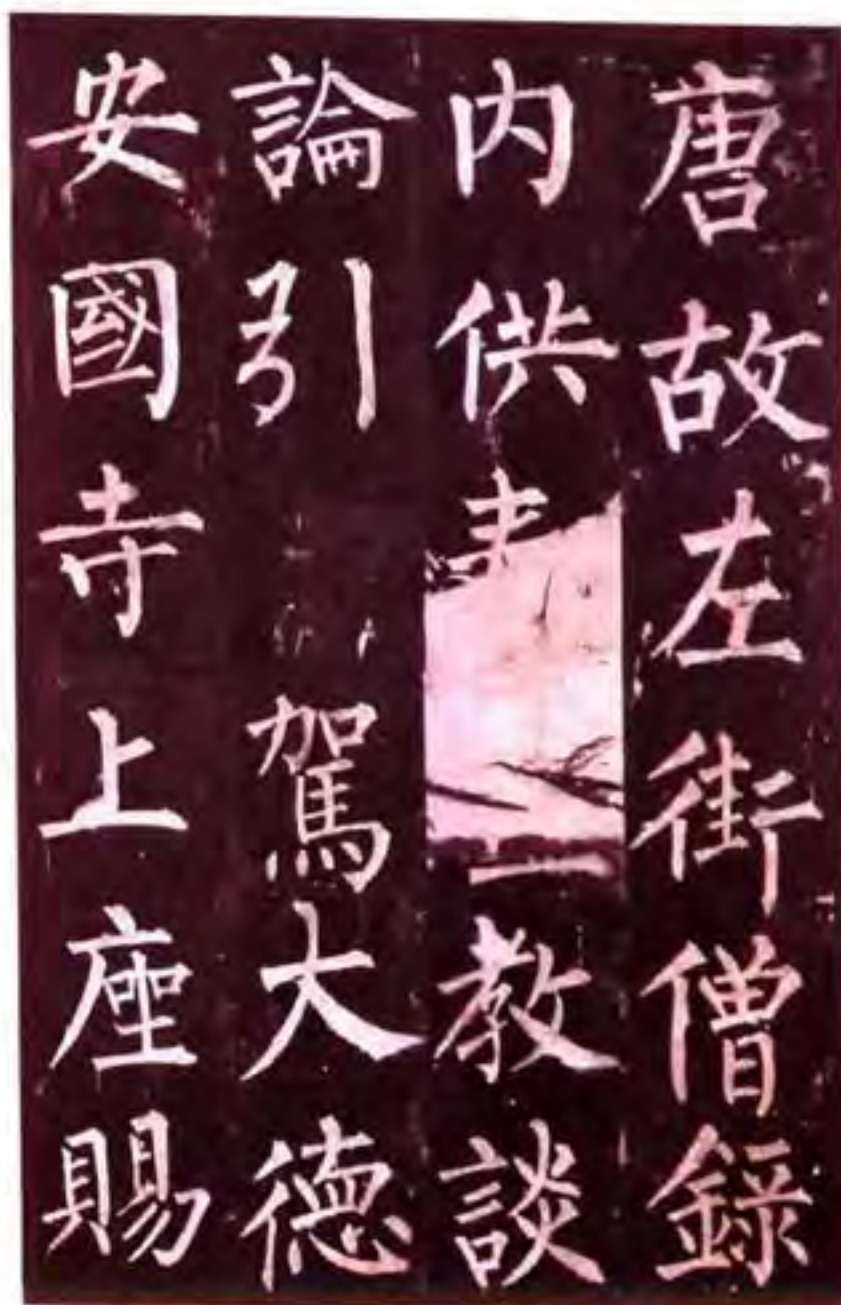 唐故左街僧錄
内供教談
論引駕大德
安國寺上座賜